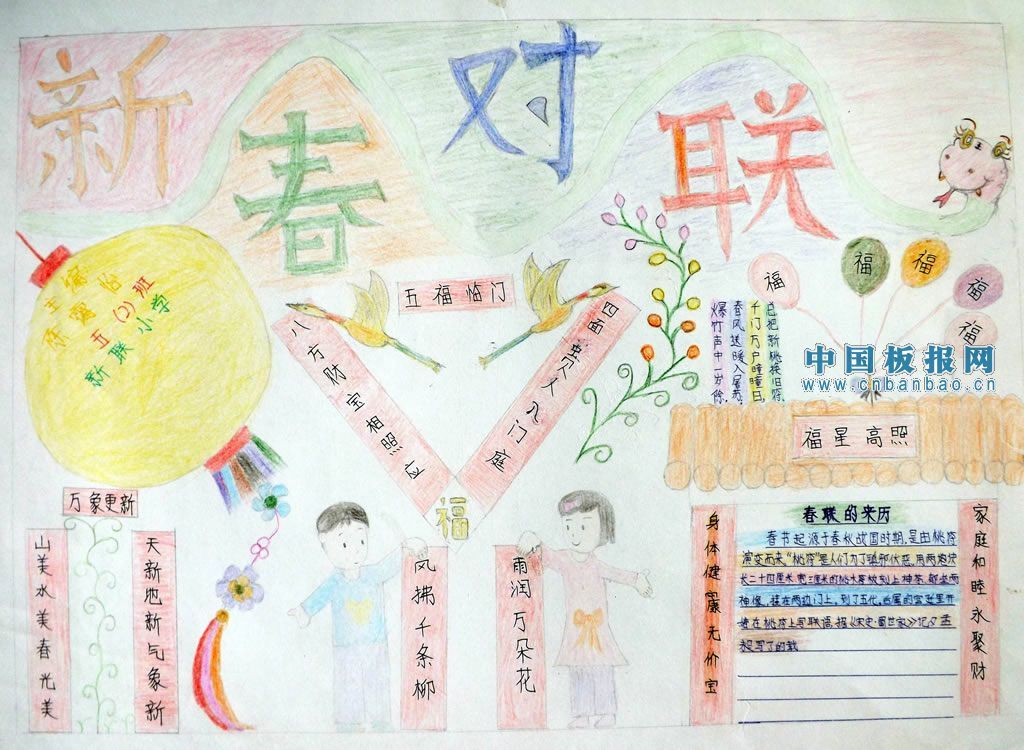 新春对联
五(2)班
新联小学
五福临门
八方财宝相照应
四面贵人入门庭
福
总把新桃换旧符。
千门万户曈曈日,
春风送暖入屠苏。
爆竹声中一岁除,
福
福
福
福
福
中国板报网
www.cnbanbao.cn
福星高照
万象更新
山美水美春光美
天新地新气象新
风拂千条柳
雨润万朵花
身体健康无价宝
家庭和睦永聚财
春联的来历
春节起源于春秋战国时期,是由桃符
演变而来"桃符"是人们为了镇邪伏恶,用两块
长二十四厘米,宽三厘米的桃木
神像,挂在两边门上,到了五代,
在桃符上写联语,据《宋史·蜀世家》记